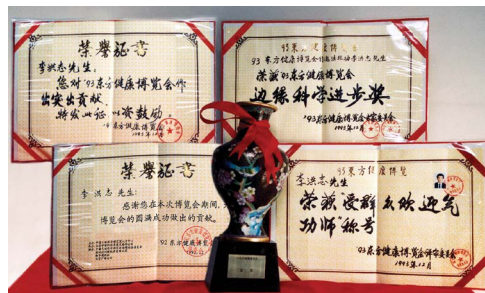 荣誉证书
李洪志先生:
您对'93东方健康博览会作
出突出贡献,
特发此证,以资鼓励
'93东方健康博览会
1993年12月
93东方健康博览会
李洪志先生
荣获'93东方健康博览会
边缘科学进步奖
'93东方健康博览会评审委员会
1993年12月
荣誉证书
李洪志先生:
感谢您在本次博览会期间,
博览会的圆满成功做出的贡献。
'92东方健康博览会
93东方健康博览
李洪志先生
荣获受群众欢迎气
功师"称号
'93东方健康博览会评审委员会
1993年12月